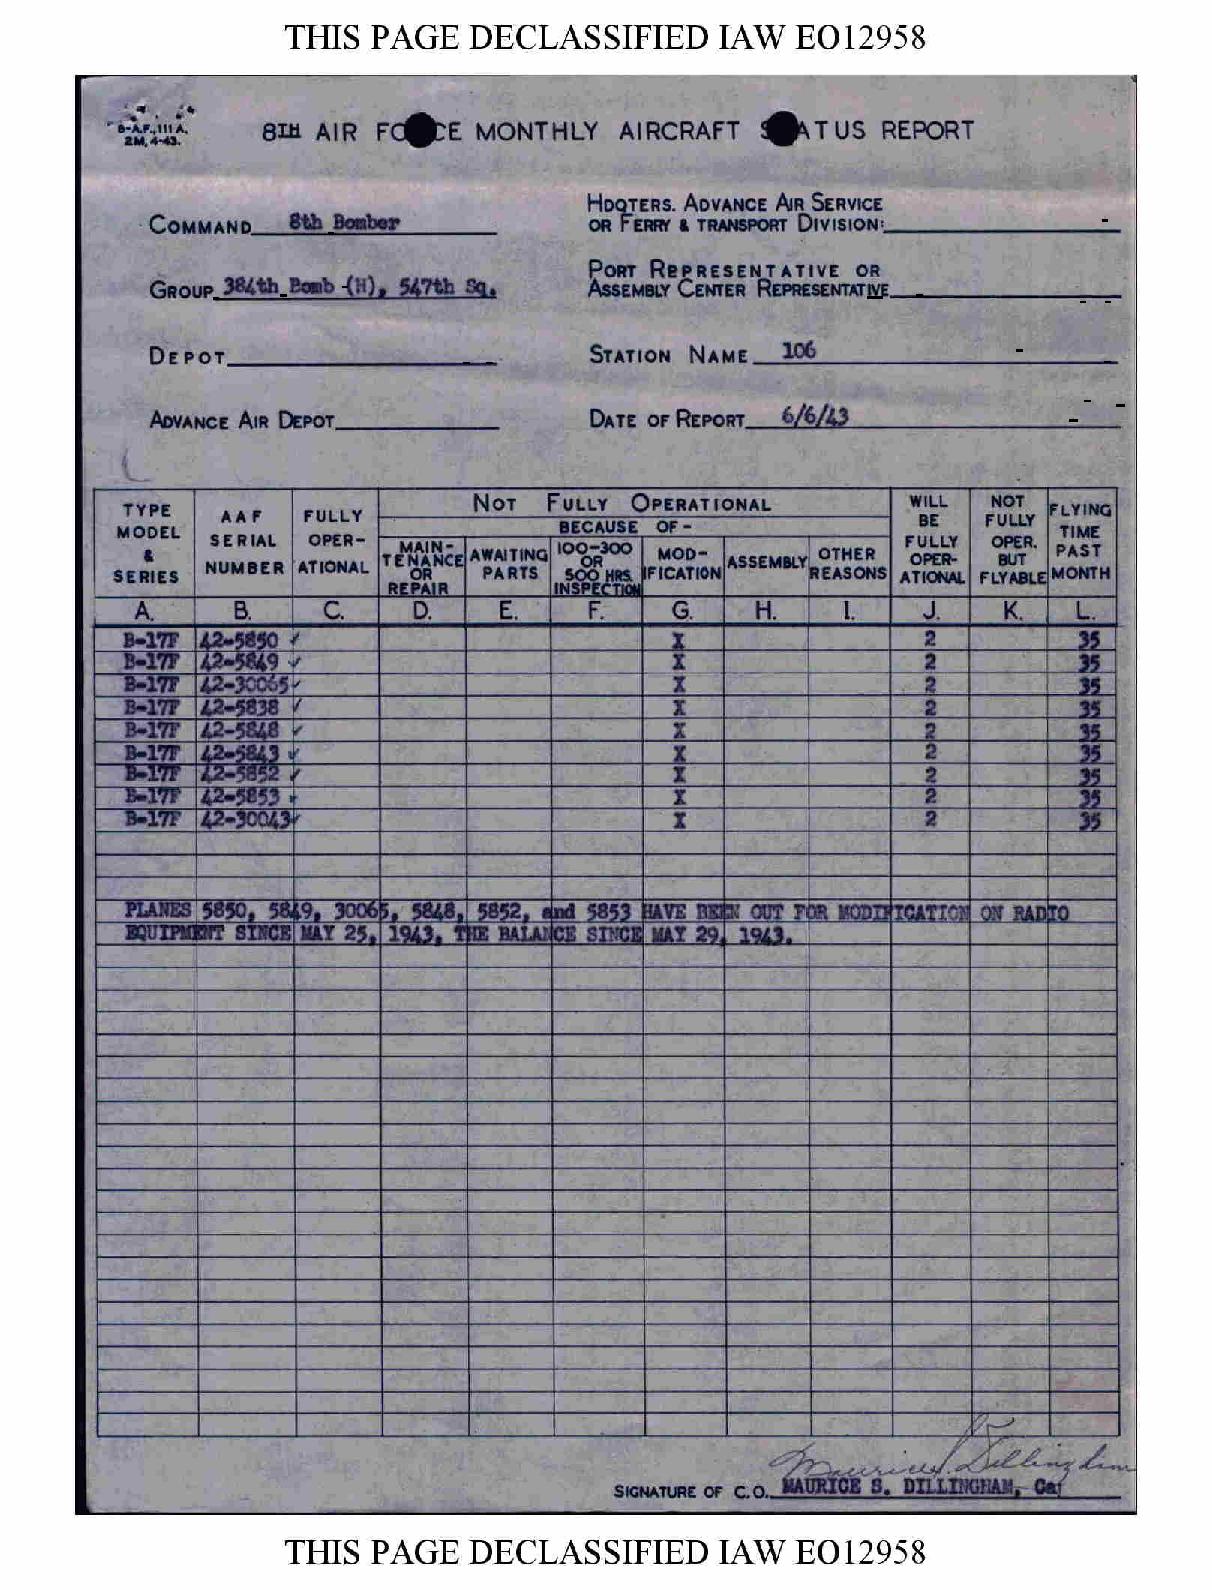 THIS PAGE DECLASSIFIED IAW EO12958
B-A.F.,111 A.
2M, 4-43.
8TH AIR FO CE MONTHLY AIRCRAFT S ATUS REPORT
COMMAND 8th Bomber
HDQTERS. ADVANCE AIR SERVICE
OR FERRY & TRANSPORT DIVISION:
GROUP 384th Bomb (H), 547th Sq.
PORT REPRESENTATIVE OR
ASSEMBLY CENTER REPRESENTATIVE
DEPOT
STATION NAME 106
ADVANCE AIR DEPOT
DATE OF REPORT 6/6/43
TYPE MODEL & SERIES
AAF SERIAL NUMBER
FULLY OPER-ATIONAL
NOT FULLY OPERATIONAL
BECAUSE OF-
MAIN-TENANCE OR REPAIR
AWAITING PARTS
100-300 OR 500 HRS. INSPECTION
MOD-IFICATION
ASSEMBLY
OTHER REASONS
WILL BE FULLY OPER-ATIONAL
NOT FULLY OPER. BUT FLYABLE
FLYING TIME PAST MONTH
A. B. C. D. E. F. G. H. I. J. K. L.
B-17F 42-5850 ✓ X 2 35
B-17F 42-5849 ✓ X 2 35
B-17F 42-30065 ✓ X 2 35
B-17F 42-5838 ✓ X 2 35
B-17F 42-5848 ✓ X 2 35
B-17F 42-5843 ✓ X 2 35
B-17F 42-5852 ✓ X 2 35
B-17F 42-5853 ✓ X 2 35
B-17F 42-30043 ✓ X 2 35
PLANES 5850, 5849, 30065, 5848, 5852, and 5853 HAVE BEEN OUT FOR MODIFICATION ON RADIO
EQUIPMENT SINCE MAY 25, 1943, THE BALANCE SINCE MAY 29, 1943.
Maurice S. Dillingham
SIGNATURE OF C.O. MAURICE S. DILLINGHAM, Ca
THIS PAGE DECLASSIFIED IAW EO12958